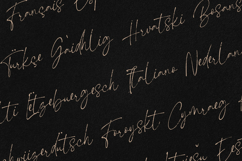 Français
Türkçe Gàidhlig Hrvatski Bosans
ti Lëtzebuergesch Italiano Nederlan
Schwiizerdütsch Føroyskt Cymraeg